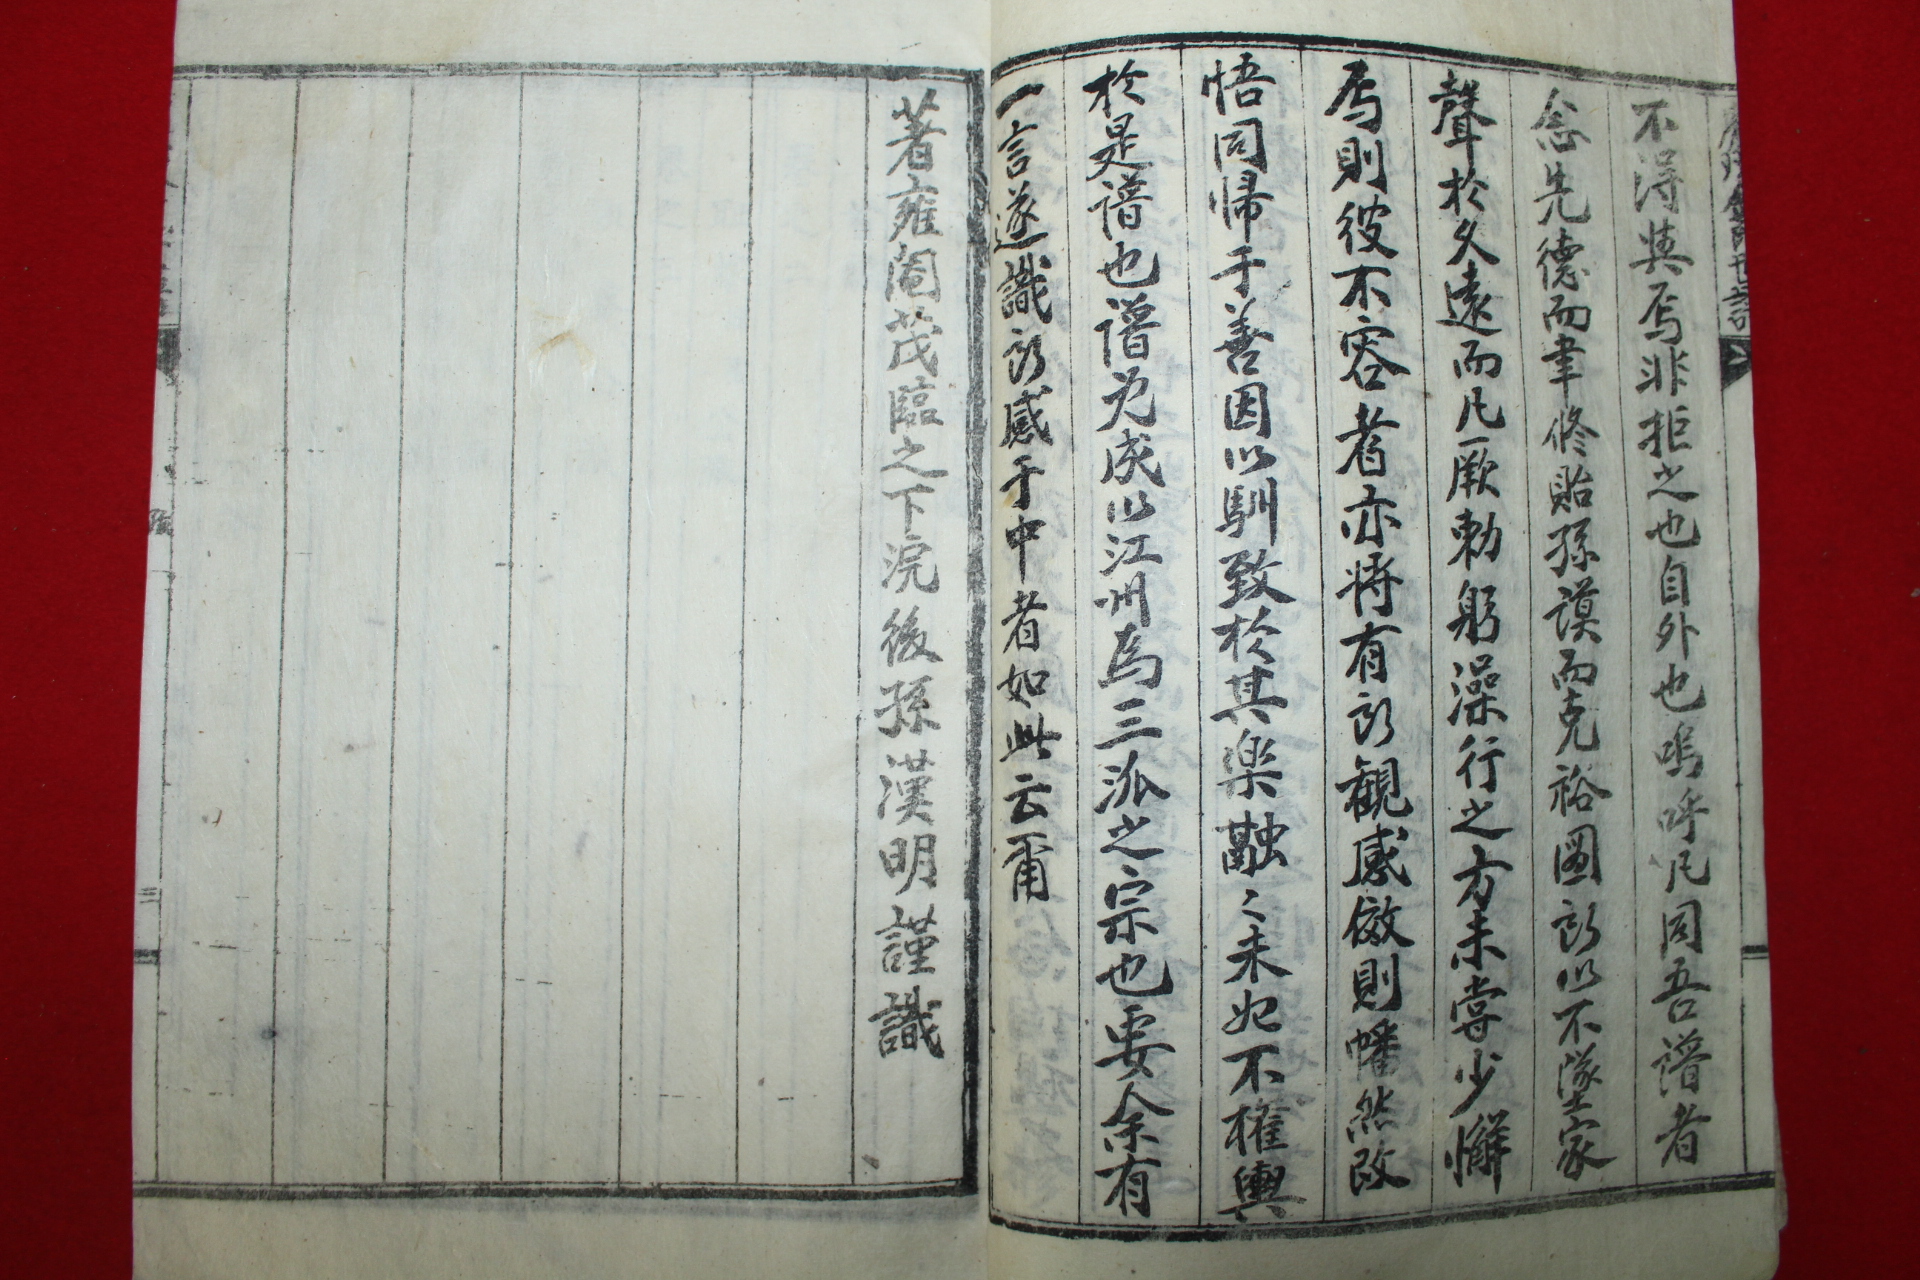 不得與焉非拒之也自外也嗚呼凡同吾譜者
念先德而聿修貽孫謨而克裕圖所以不墜家
聲於久遠而凡厥勅躬澡行之方未嘗少懈
焉則彼不容者亦將有所觀感倣則幡然改
悟同歸于善因以馴致於其樂融〻未必不權輿
於是譜也譜旣成以江州爲三派之宗也要余有
一言遂識所感于中者如此云爾
著雍閹茂臨之下浣後孫漢明謹識